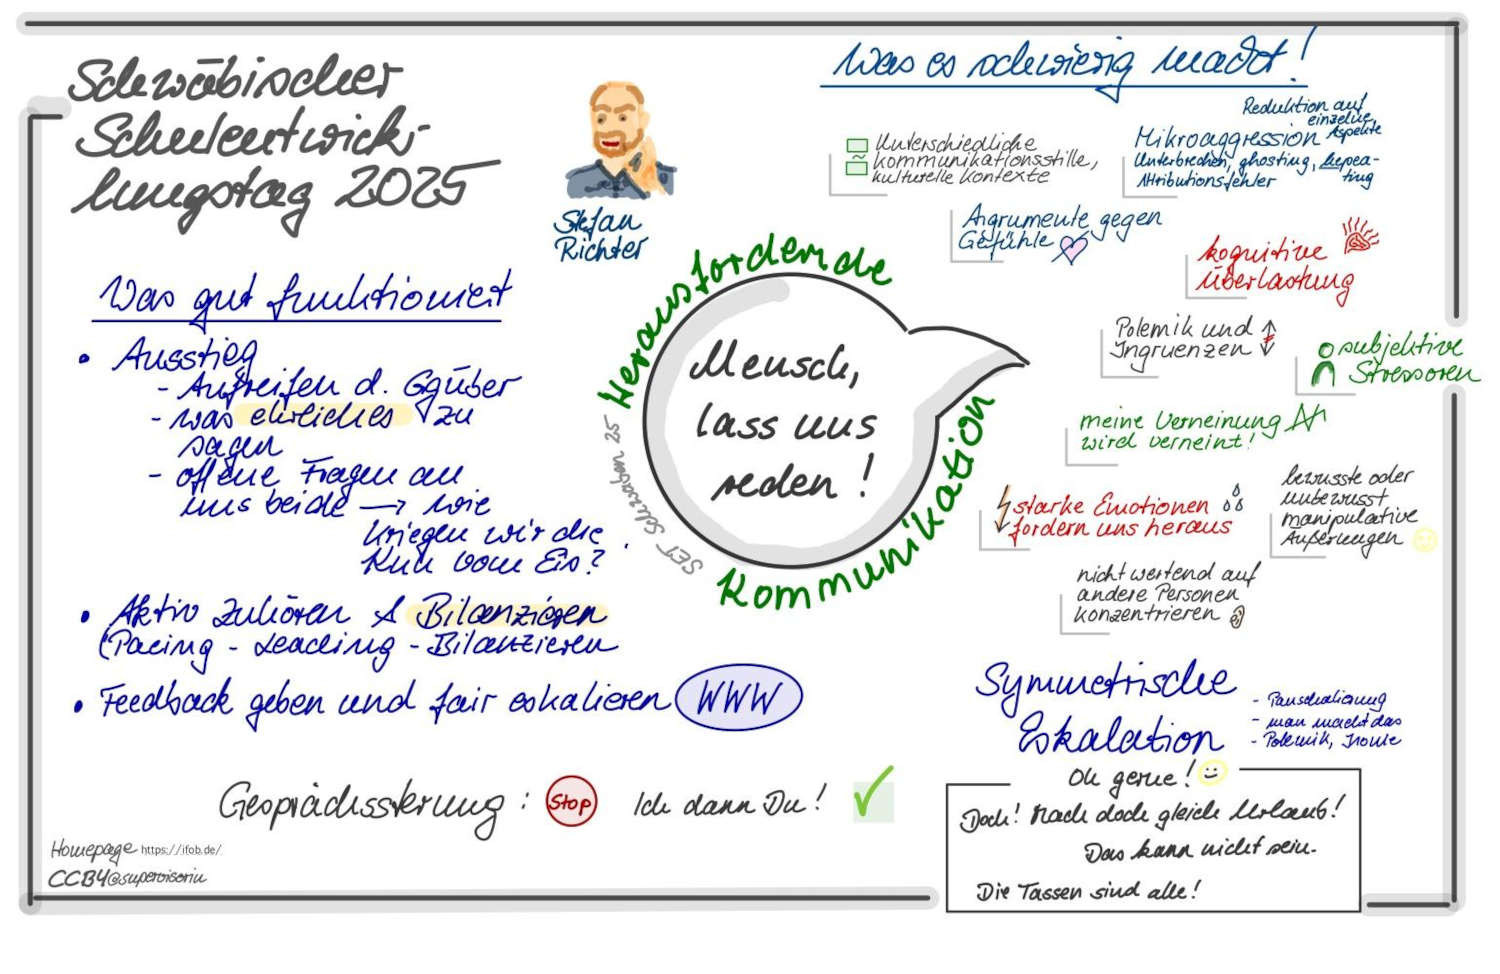 Schwäbischer
Schulentwick-
lungstag 2025
Stefan
Richter
Was gut funktioniert
• Ausstieg
- Aufgreifen d. Ggüber
- was ehrliches zu
sagen
- offene Fragen an
uns beide → wie
kriegen wir die
Kuh vom Eis?
• Aktiv Zuhören & Bilanzieren
(Pacing - Leading - Bilanzieren
• Feedback geben und fair eskalieren WWW
Gesprächssterung: Stop Ich dann Du!
Homepage https://ifob.de/
CCBY@supervisorin
Herausfordernde
Mensch,
lass uns
reden!
Kommunikation
SET Schwaben 25
Was es schwierig macht!
Unterschiedliche
~ kommunikationsstille,
kulturelle Kontexte
Reduktion auf
einzelne
Aspekte
Mikroaggression
Unterbrechen, ghosting, hepea-
ting
Attributionsfehler
Argrumente gegen
Gefühle
kognitive
Überlastung
Polemik und
Ingruenzen
subjektive
Stressoren
meine Verneinung
wird verneint!
starke Emotionen
fordern uns heraus
bewusste oder
unbewusst
manipulative
Äußerungen
nicht wertend auf
andere Personen
konzentrieren
Symmetrische
Eskalation
- Pauschalierung
- man macht das
- Polemik, Ironie
Oh gerne!
Doch! Mach doch gleich Urlaub!
Das kann nicht sein.
Die Tassen sind alle!